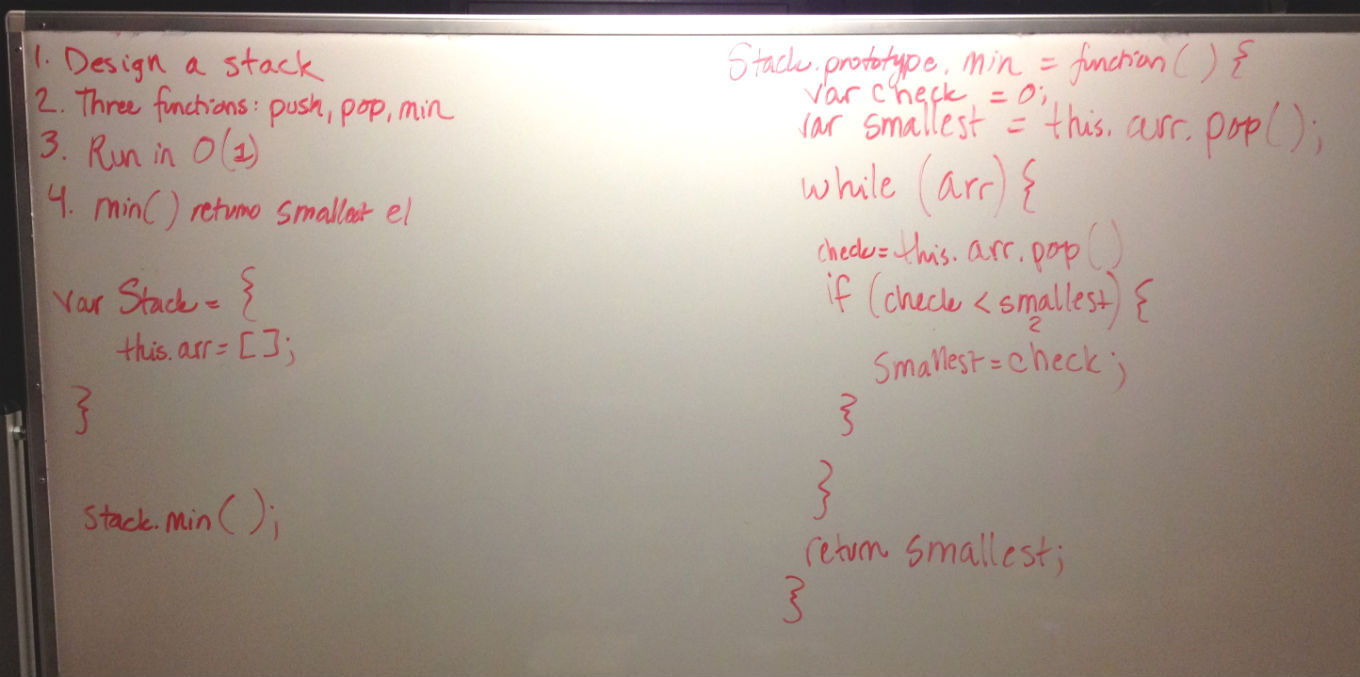 1. Design a stack
2. Three functions: push, pop, min
3. Run in O(1)
4. min() returns smallest el
var Stack = {
this.arr = [];
}
stack.min();
Stack.prototype.min = function() {
var check = 0;
var smallest = this.arr.pop();
while (arr) {
check = this.arr.pop()
if (check < smallest) {
2
smallest = check;
}
}
return smallest;
}